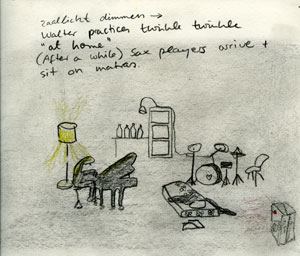 zaallicht dimmen →
Walter practices twinkle twinkle
"at home"
(After a while) Sax players arrive +
sit on matras.